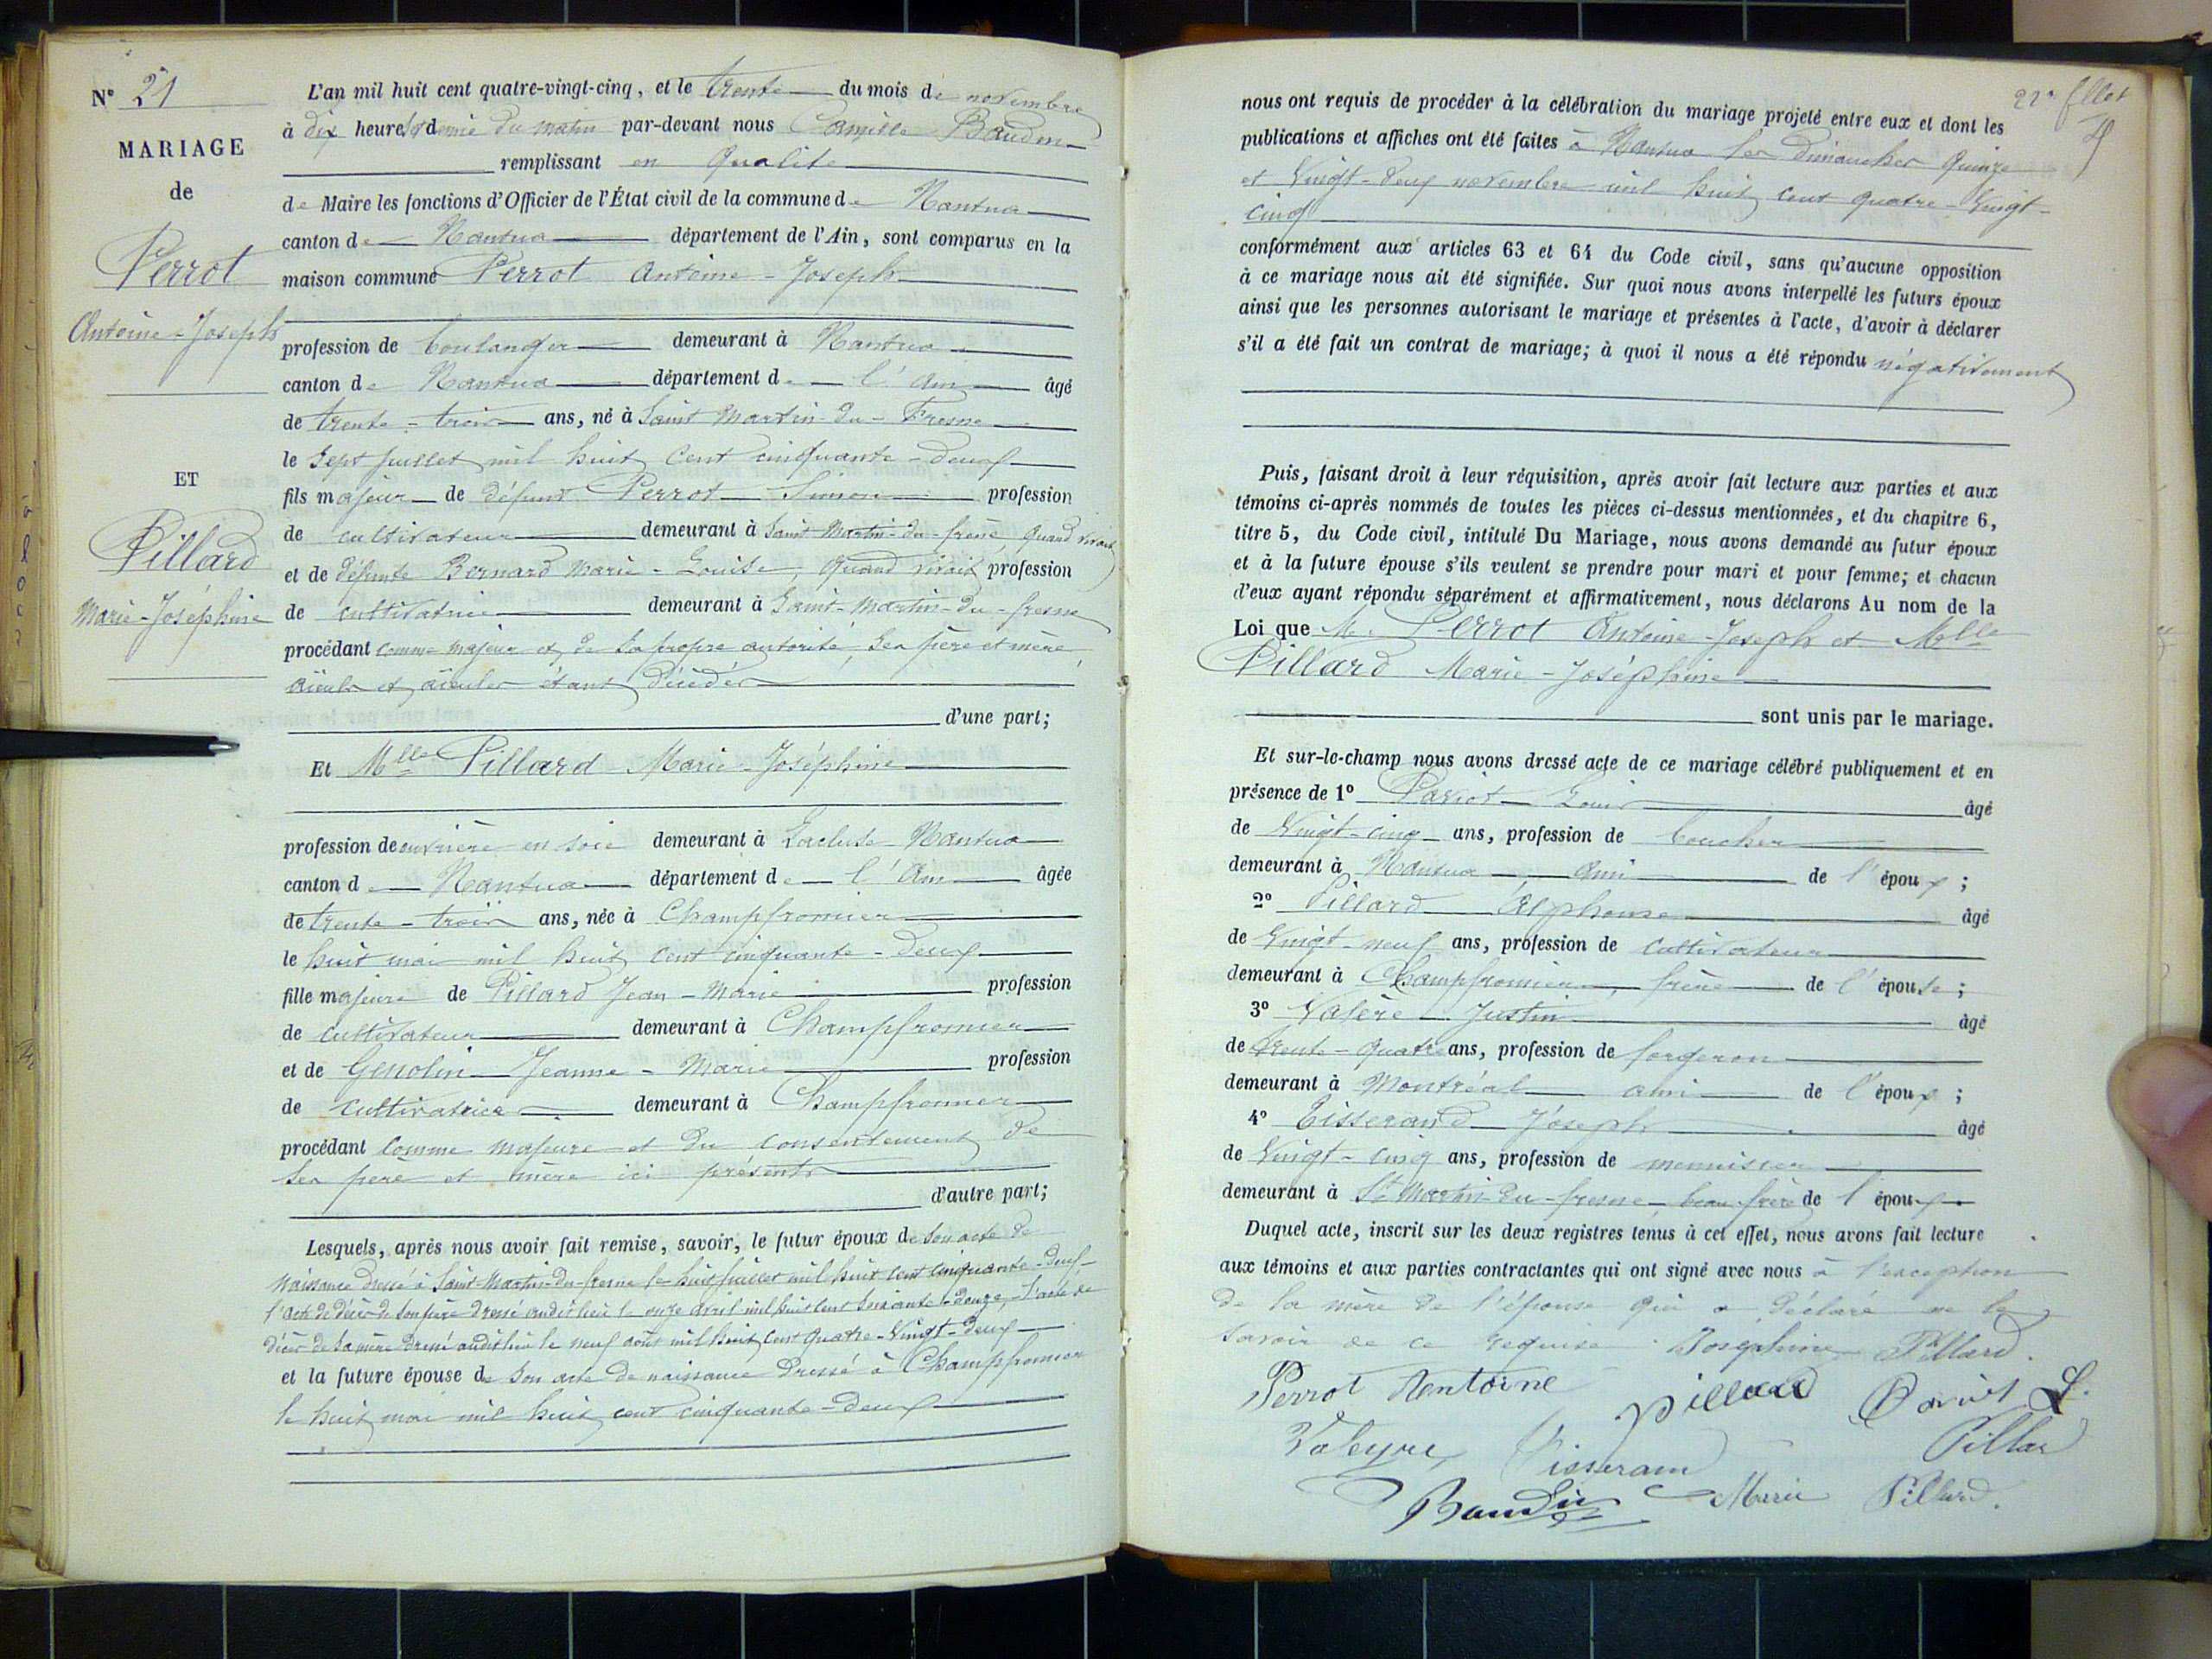 N° 21
MARIAGE
de
Perrot
Antoine-Joseph
ET
Pillard
Marie-Joséphine
L'an mil huit cent quatre-vingt-cinq, et le trente du mois de novembre
à dix heures et demie du matin par-devant nous Camille Baudin
remplissant en qualité
de Maire les fonctions d'Officier de l'État civil de la commune de Nantua
canton de Nantua département de l'Ain, sont comparus en la
maison commune Perrot Antoine-Joseph
profession de boulanger demeurant à Nantua
canton de Nantua département de l'Ain âgé
de trente-trois ans, né à Saint Martin-du-Fresne
le sept juillet mil huit cent cinquante-deux
fils majeur de défunt Perrot Simon profession
de cultivateur demeurant à Saint-Martin-du-fresne quand vivait
et de défunte Bernard Marie-Louise, quand vivait profession
de cultivatrice demeurant à Saint-Martin-du-fresne
procédant comme majeur et de sa propre autorité, ses père et mère,
aïeuls et aïeules étant décédés
d'une part;
Et Mlle Pillard Marie-Joséphine
profession de ouvrière en soie demeurant à Lacluse Nantua
canton de Nantua département de l'Ain âgée
de trente-trois ans, née à Champfromier
le huit mai mil huit cent cinquante-deux
fille majeure de Pillard Jean-Marie profession
de cultivateur demeurant à Champfromier
et de Genolin Jeanne-Marie profession
de cultivatrice demeurant à Champfromier
procédant comme majeure et du consentement de
ses père et mère ici présents
d'autre part;
Lesquels, après nous avoir fait remise, savoir, le futur époux de son acte de
naissance dressé à Saint-Martin-du-fresne le huit juillet mil huit cent cinquante-deux
l'acte de décès de son père dressé audit lieu le onze avril mil huit cent soixante-douze, l'acte de
décès de sa mère dressé audit lieu le neuf août mil huit cent quatre-vingt-deux
et la future épouse de son acte de naissance dressé à Champfromier
le huit mai mil huit cent cinquante-deux
nous ont requis de procéder à la célébration du mariage projeté entre eux et dont les
publications et affiches ont été faites à Nantua les dimanches quinze
et vingt-deux novembre mil huit cent quatre-vingt-
cinq
conformément aux articles 63 et 64 du Code civil, sans qu'aucune opposition
à ce mariage nous ait été signifiée. Sur quoi nous avons interpellé les futurs époux
ainsi que les personnes autorisant le mariage et présentes à l'acte, d'avoir à déclarer
s'il a été fait un contrat de mariage; à quoi il nous a été répondu négativement
Puis, faisant droit à leur réquisition, après avoir fait lecture aux parties et aux
témoins ci-après nommés de toutes les pièces ci-dessus mentionnées, et du chapitre 6,
titre 5, du Code civil, intitulé Du Mariage, nous avons demandé au futur époux
et à la future épouse s'ils veulent se prendre pour mari et pour femme; et chacun
d'eux ayant répondu séparément et affirmativement, nous déclarons Au nom de la
Loi que M. Perrot Antoine-Joseph et Melle
Pillard Marie-Joséphine
sont unis par le mariage.
Et sur-le-champ nous avons dressé acte de ce mariage célébré publiquement et en
présence de 1° Pariot Louis âgé
de vingt-cinq ans, profession de boucher
demeurant à Nantua ami de l'époux;
2° Pillard Alphonse âgé
de vingt-neuf ans, profession de cultivateur
demeurant à Champfromier, frère de l'épouse;
3° Valère Justin âgé
de trente-quatre ans, profession de forgeron
demeurant à Montréal ami de l'époux;
4° Tisserand Joseph âgé
de vingt-cinq ans, profession de menuisier
demeurant à St Martin-du-fresne, beau-frère de l'époux
Duquel acte, inscrit sur les deux registres tenus à cet effet, nous avons fait lecture
aux témoins et aux parties contractantes qui ont signé avec nous à l'exception
de la mère de l'épouse qui a déclaré ne le
savoir de ce requise. Josephine Pillard.
Perrot Antoine Pillard Pariot L.
Valeyre Tisseran Pillar
Baudin Marie Pillard.